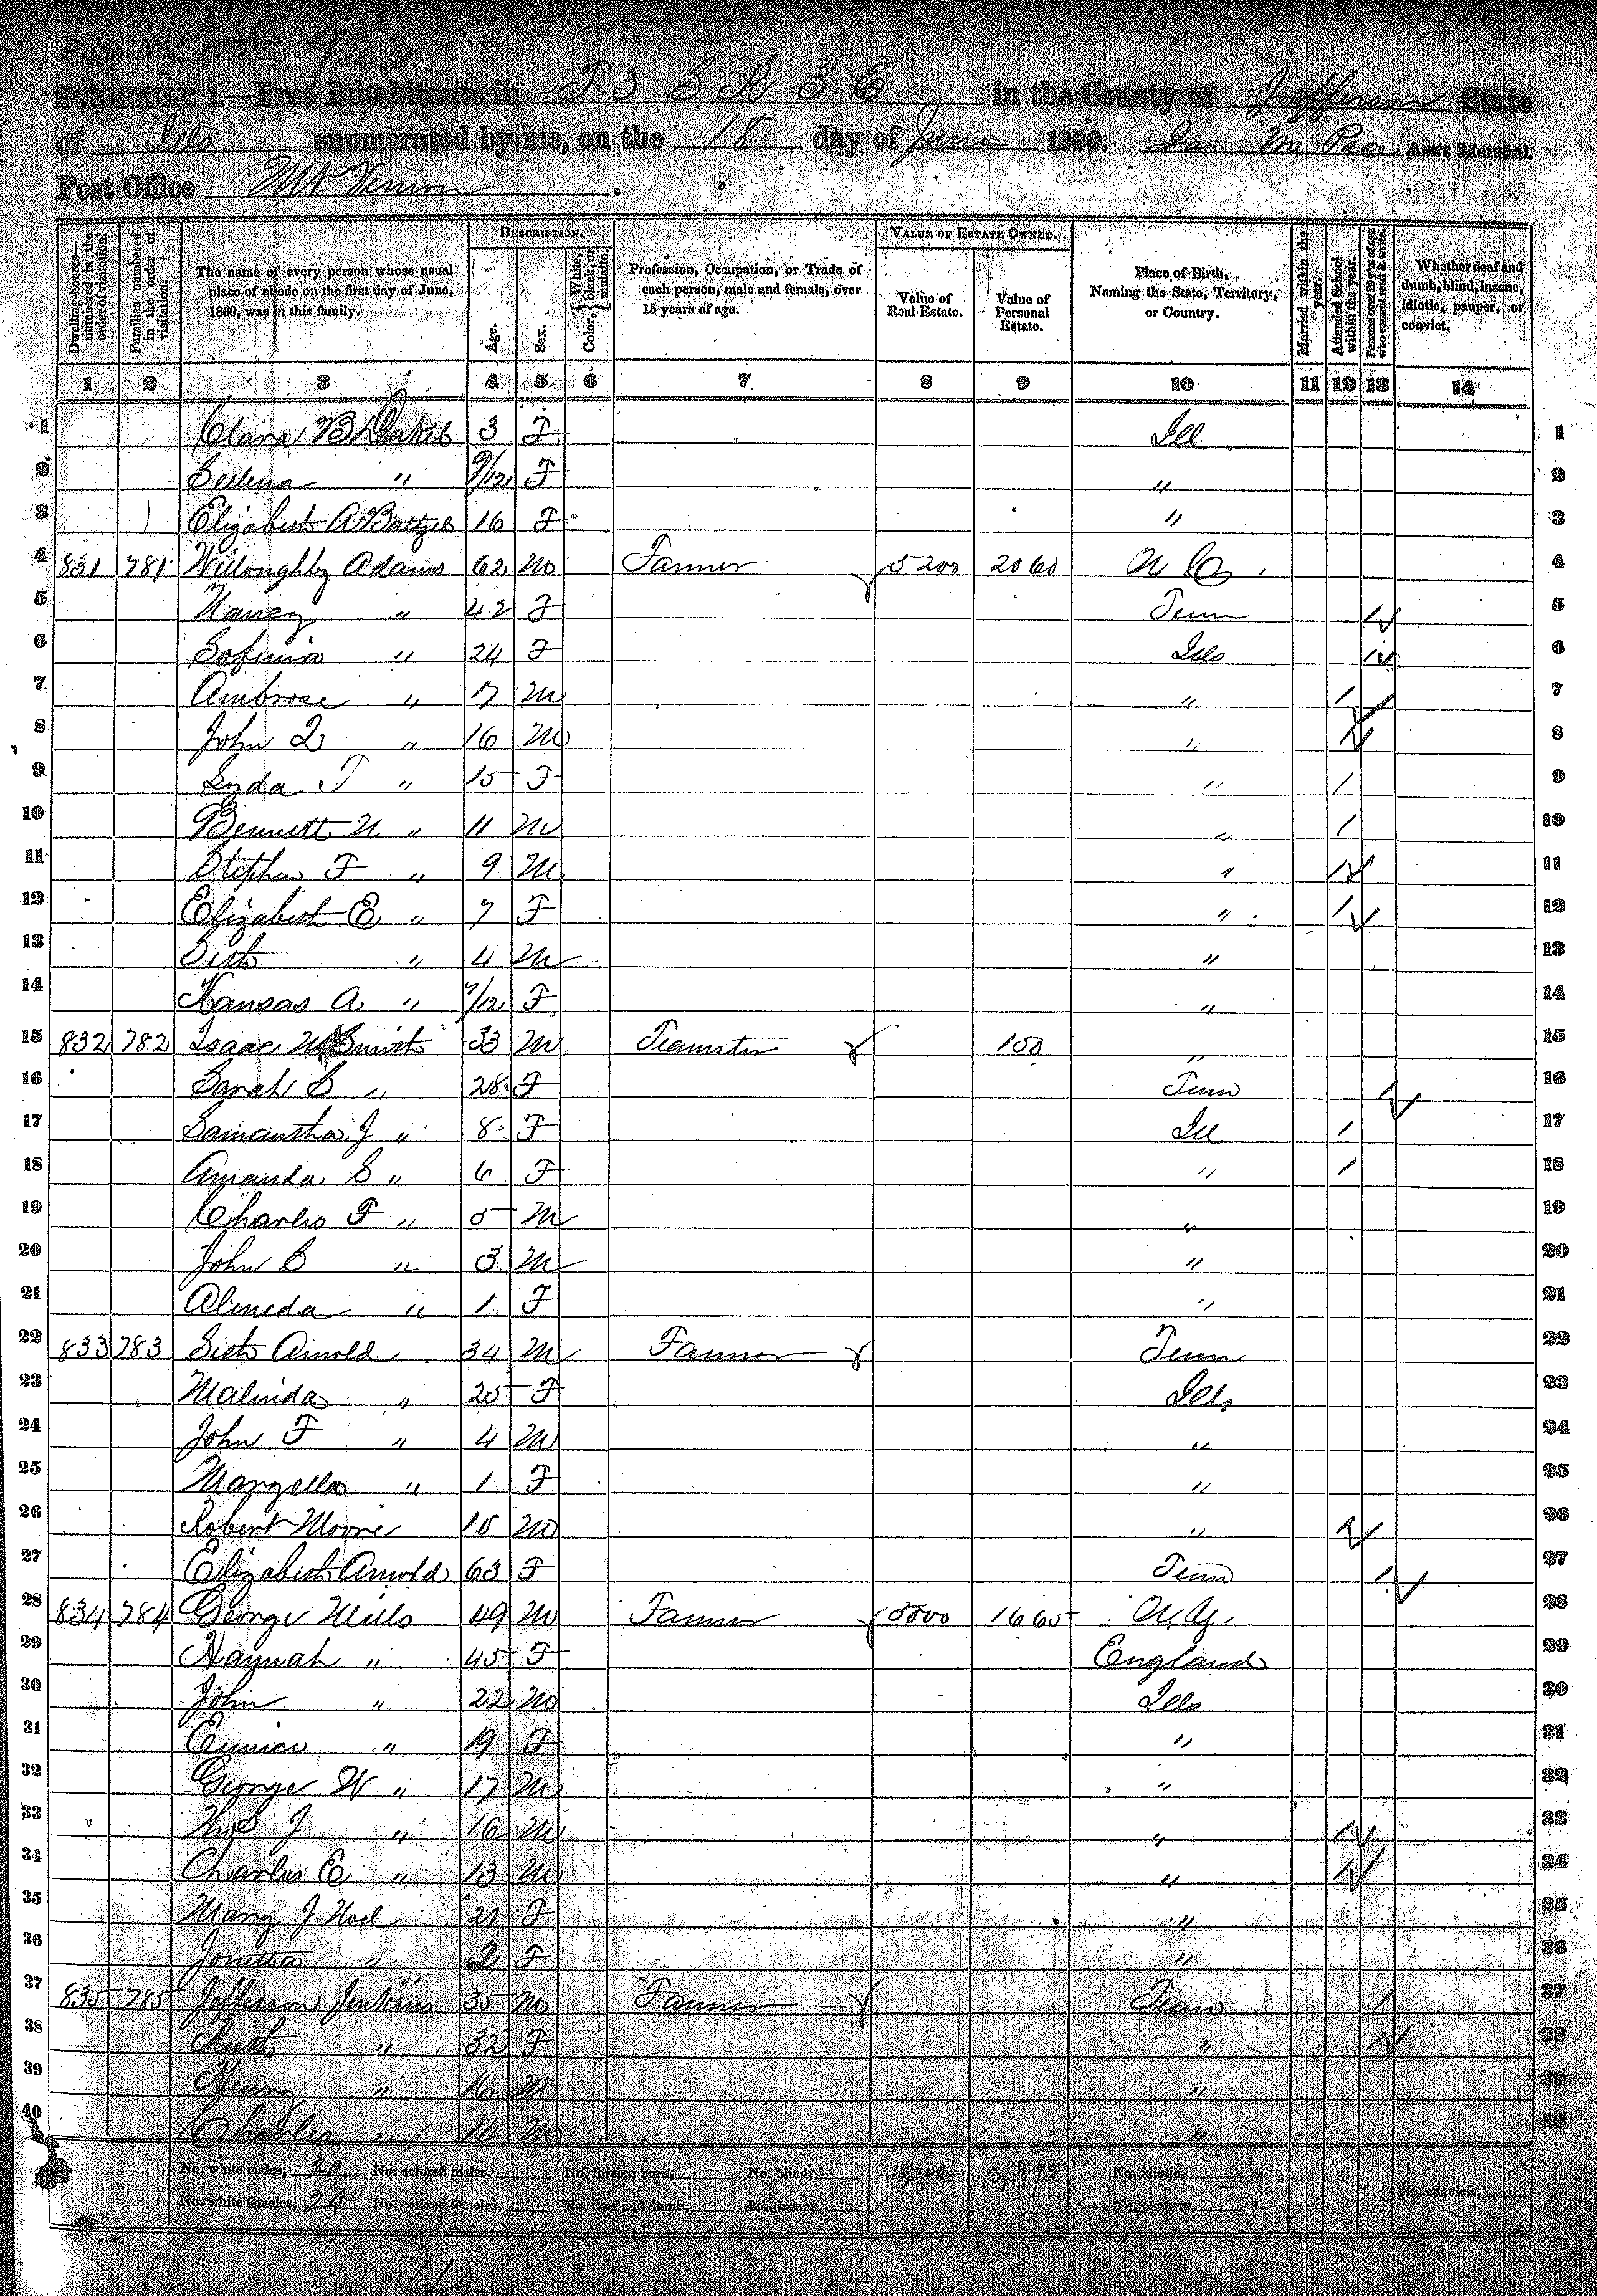 Page No. 903
SCHEDULE 1.—Free Inhabitants in T 3 S R 3 E in the County of Jefferson State
of Ills enumerated by me, on the 18 day of June 1860. Jas M Pace Ass't Marshal.
Post Office Mt Vernon.
Dwelling-houses—numbered in the order of visitation.
Families numbered in the order of visitation.
The name of every person whose usual place of abode on the first day of June, 1860, was in this family.
DESCRIPTION.
Age.
Sex.
Color, White, black, or mulatto.
Profession, Occupation, or Trade of each person, male and female, over 15 years of age.
VALUE OF ESTATE OWNED.
Value of Real Estate.
Value of Personal Estate.
Place of Birth, Naming the State, Territory, or Country.
Married within the year.
Attended School within the year.
Persons over 20 y'rs of age who cannot read & write.
Whether deaf and dumb, blind, insane, idiotic, pauper, or convict.
1 2 3 4 5 6 7 8 9 10 11 12 13 14
1 Clara B 3 F Ill 1
2 " 9/12 F " 2
3 Elizabeth A 16 F " 3
4 831 781 Willoughby Adams 62 M Farmer 5200 2060 N C. 4
5 Nancy " 42 F Tenn / 5
6 " 24 F Ills / 6
7 Ambrose " 17 M " / 7
8 John Q " 16 M " / 8
9 Lyda T " 15 F " / 9
10 Bennett N " 11 M " / 10
11 Stephen F " 9 M " / 11
12 Elizabeth E " 7 F " / 12
13 Seth " 4 M " 13
14 Kansas A " 7/12 F " 14
15 832 782 Isaac Smith 33 M Teamster 100 " 15
16 Sarah E " 28 F Tenn / 16
17 Samantha J " 8 F Ill / 17
18 Amanda E " 6 F " / 18
19 Charles F " 5 M " 19
20 John S " 3 M " 20
21 Almeda " 1 F " 21
22 833 783 Seth Arnold 34 M Farmer Tenn 22
23 Malinda " 25 F Ills 23
24 John F " 4 M " 24
25 Marzella " 1 F " 25
26 Robert Moore 15 M " / 26
27 Elizabeth Arnold 63 F Tenn / 27
28 834 784 George Mills 49 M Farmer 5000 1665 N. Y. 28
29 Hannah " 45 F England 29
30 John " 22 M Ills 30
31 Eunice " 19 F " 31
32 George W " 17 M " 32
33 Thos J " 16 M " / 33
34 Charles E " 13 M " / 34
35 Mary J Noel 21 F " 35
36 " 2 F " 36
37 835 785 Jefferson Jenkins 35 M Farmer Tenn / 37
38 Ruth " 32 F " / 38
39 Henry " 16 M " 39
40 Charles " 14 M " 40
No. white males, 20 No. colored males, No. foreign born, No. blind, 10,200 3,875 No. idiotic,
No. white females, 20 No. colored females, No. deaf and dumb, No. insane, No. paupers, No. convicts,